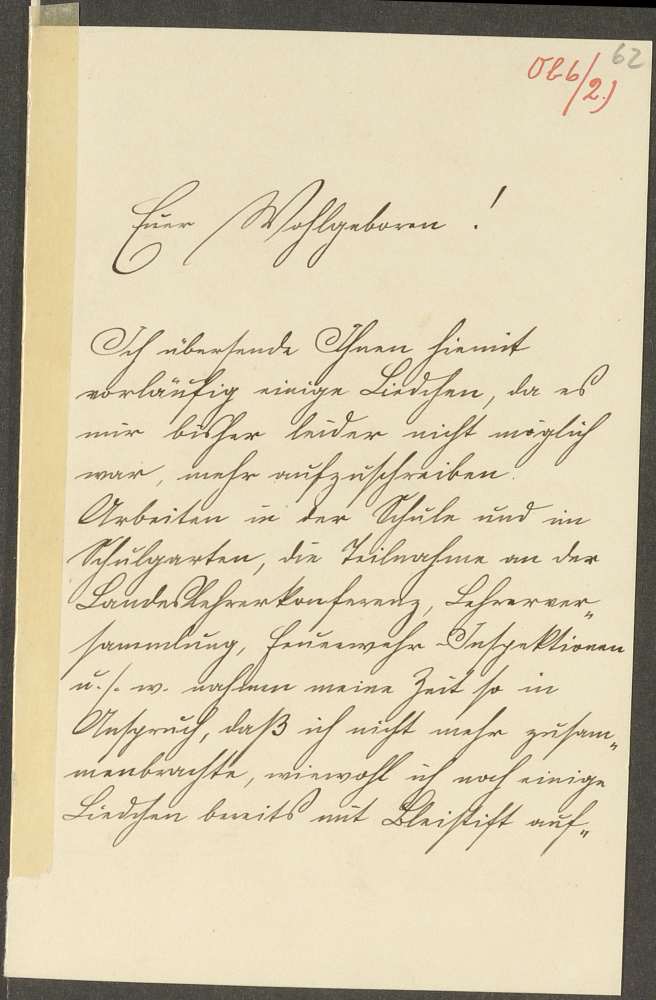 62
Ob6/2.)
Euer Wohlgeboren!
Ich übersende Ihnen hiemit
vorläufig einige Liedchen, da es
mir bisher leider nicht möglich
war, mehr aufzuschreiben.
Arbeiten in der Schule und im
Schulgarten, die Teilnahme an der
Landeslehrerkonferenz, Lehrerver„
sammlung, Feuerwehr-Inspektionen
u. s. w. nahmen meine Zeit so in
Anspruch, daß ich nicht mehr zusam„
menbrachte, wiewohl ich noch einige
Liedchen bereits mit Bleistift auf„